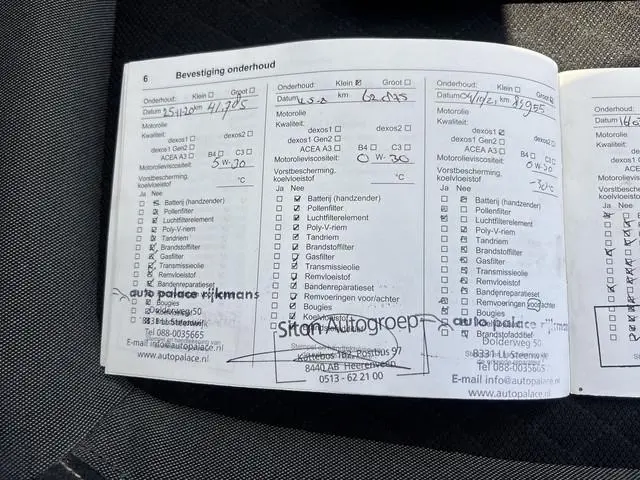 6 Bevestiging onderhoud
Onderhoud: Klein Groot
Datum 25-11-20 km 41.705
Motorolie
Kwaliteit:
dexos1 dexos2
dexos1 Gen2
ACEA A3 B4 C3
Motorolieviscositeit: 5 W-30
Vorstbescherming,
koelvloeistof °C
Ja Nee
Batterij (handzender)
Pollenfilter
Luchtfilterelement
Poly-V-riem
Tandriem
Brandstoffilter
Gasfilter
Transmissieolie
Remvloeistof
Bandenreparatieset
auto palace rijkmans
Bougies
Dolderweg 50
8331 LL Steenwijk
Tel 088-0035665
E-mail info@autopalace.nl
www.autopalace.nl
Onderhoud: Klein Groot
Datum km 62.875
Motorolie
Kwaliteit:
dexos1 dexos2
dexos1 Gen2
ACEA A3 B4 C3
Motorolieviscositeit: 0 W-30
Vorstbescherming,
koelvloeistof °C
Ja Nee
Batterij (handzender)
Pollenfilter
Luchtfilterelement
Poly-V-riem
Tandriem
Brandstoffilter
Gasfilter
Transmissieolie
Remvloeistof
Bandenreparatieset
Remvoeringen voor/achter
Bougies
Koelvloeistof
Siton Autogroep
Kattebos 162, Postbus 97
8440 AB Heerenveen
0513 - 62 21 00
Onderhoud: Klein Groot
Datum km 83955
Motorolie
Kwaliteit:
dexos1 dexos2
dexos1 Gen2
ACEA A3 B4 C3
Motorolieviscositeit: 0 W-30
Vorstbescherming,
koelvloeistof -30 °C
Ja Nee
Batterij (handzender)
Pollenfilter
Luchtfilterelement
Poly-V-riem
Tandriem
Brandstoffilter
Gasfilter
Transmissieolie
Remvloeistof
Bandenreparatieset
Remvoeringen voor/achter
Bougies
auto palace rijkmans
Brandstofadditief
Dolderweg 50
8331 LL Steenwijk
Tel 088-0035665
E-mail info@autopalace.nl
www.autopalace.nl
Onderhoud:
Datum
Motorolie
Kwaliteit:
Ja Nee